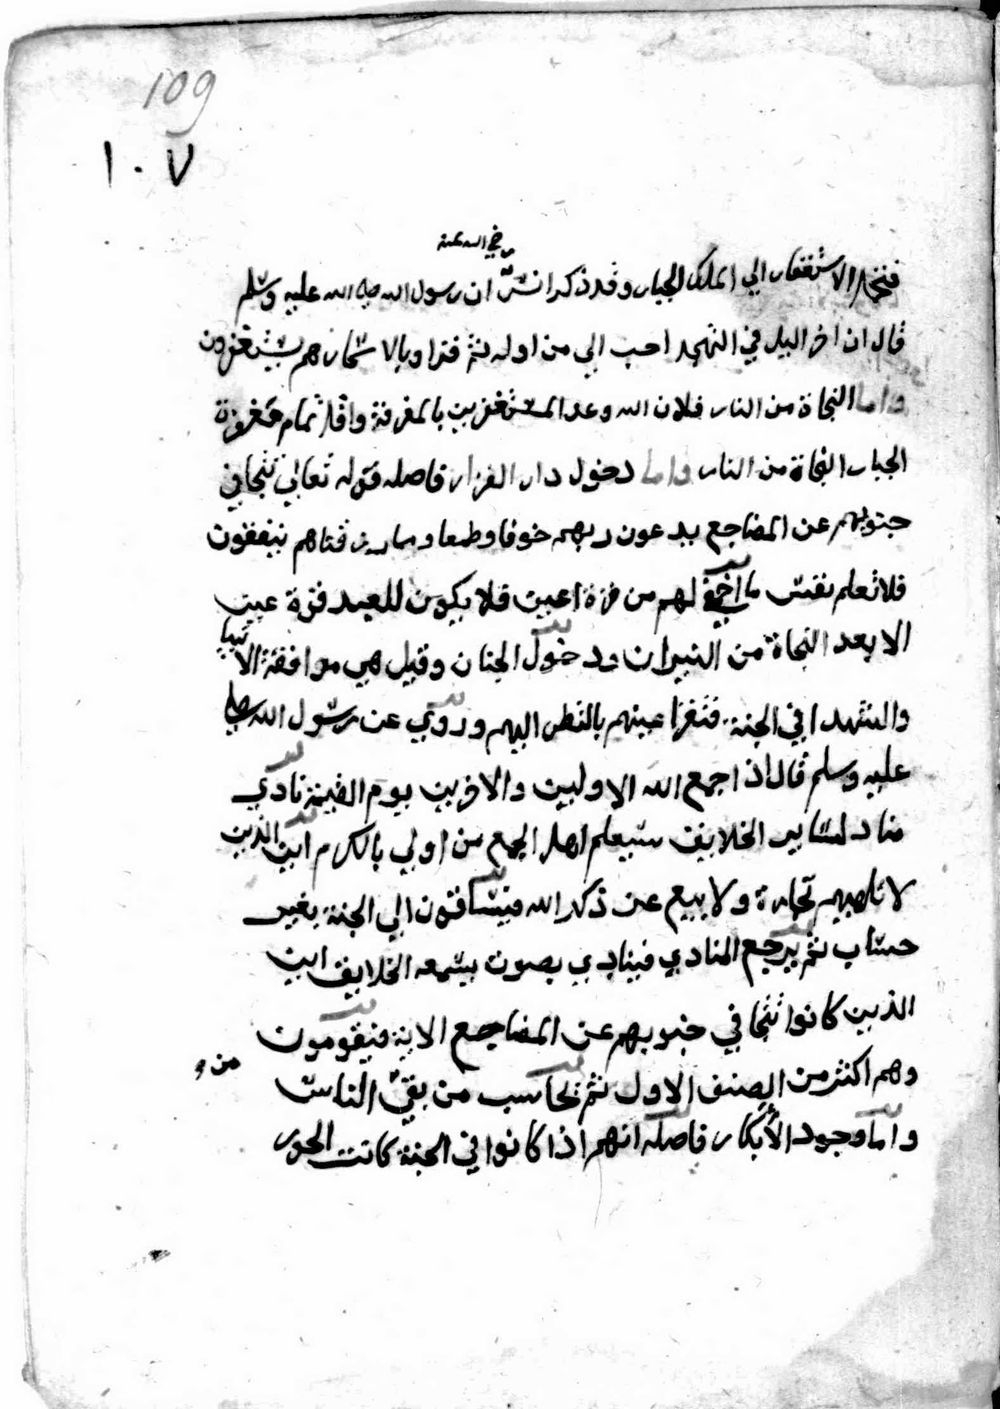 109
١٠٧
رضي الله عنه
الاستغفار الي الملك الجبار وقد ذكر انس ان رسول الله صلى الله عليه وسلم
قال ان اخر اليل في التهجد احب الي من اوله ثم قرا وبالاسحار هم يستغفرون
واما النجاة من النار فلان الله وعد المستغفرين بالمغفرة واقل تمام مغفرة
الجبار النجاة من النار واما دخول دار القرار فاصله قوله تعالي تتجافي
جنوبهم عن المضاجع يدعون ربهم خوفا وطمعا ومما رزقناهم ينفقون
فلا تعلم نفس ما اخفي لهم من قرة اعين فلا يكون للعبد قرة عين
الا بعد النجاة من النيران ودخول الجنان وقيل هي موافقة الانبيا
والشهدا في الجنة فتقر اعينهم بالنظر اليهم وروي عن رسول الله صلى
عليه وسلم قال اذا جمع الله الاولين والاخرين يوم القيمة نادي
مناد لساير الخلايق سيعلم اهل الجمع من اولي بالكرم اين الذين
لا تلهيهم تجارة ولا بيع عن ذكر الله فيساقون الي الجنة بغير
حساب ثم يرجع المنادي فينادي بصوت يسمعه الخلايق اين
الذين كانوا تتجافي جنوبهم عن المضاجع الاية فيقومون
وهم اكثر من الصنف الاول ثم يحاسب من بقي من الناس
واما وجود الأبكار فاصله انهم اذا كانوا في الجنة كانت الحور